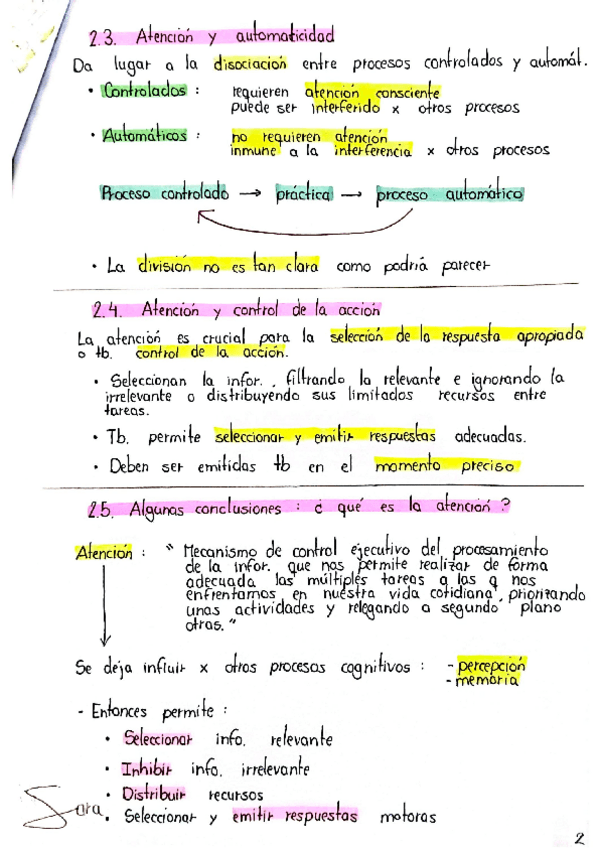 2.3. Atención y automaticidad
Da lugar a la disociación entre procesos controlados y automát.
• Controlados : requieren atención consciente
puede ser interferido x otros procesos
• Automáticos : no requieren atención
inmune a la interferencia x otros procesos
Proceso controlado → práctica → proceso automático
• La división no es tan clara como podría parecer
2.4. Atención y control de la acción
La atención es crucial para la selección de la respuesta apropiada
o tb. control de la acción.
• Seleccionan la infor., filtrando la relevante e ignorando la
irrelevante o distribuyendo sus limitados recursos entre
tareas.
• Tb. permite seleccionar y emitir respuestas adecuadas.
• Deben ser emitidas tb en el momento preciso
2.5. Algunas conclusiones : ¿ qué es la atención ?
Atención : " Mecanismo de control ejecutivo del procesamiento
de la infor. que nos permite realizar de forma
adecuada las múltiples tareas a las q nos
enfrentamos en nuestra vida cotidiana, priorizando
unas actividades y relegando a segundo plano
otras. "
Se deja influir x otros procesos cognitivos : - percepción
- memoria
- Entonces permite :
• Seleccionar info. relevante
• Inhibir info. irrelevante
• Distribuir recursos
• Seleccionar y emitir respuestas motoras
Sara
2